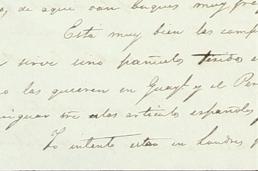 de aque van buques muy fre
Esta muy bien las camp
sirve uno pañuelo
las quieren en Guayl y el Per
tre alos articulos españoles
Lo intento estar en Londres